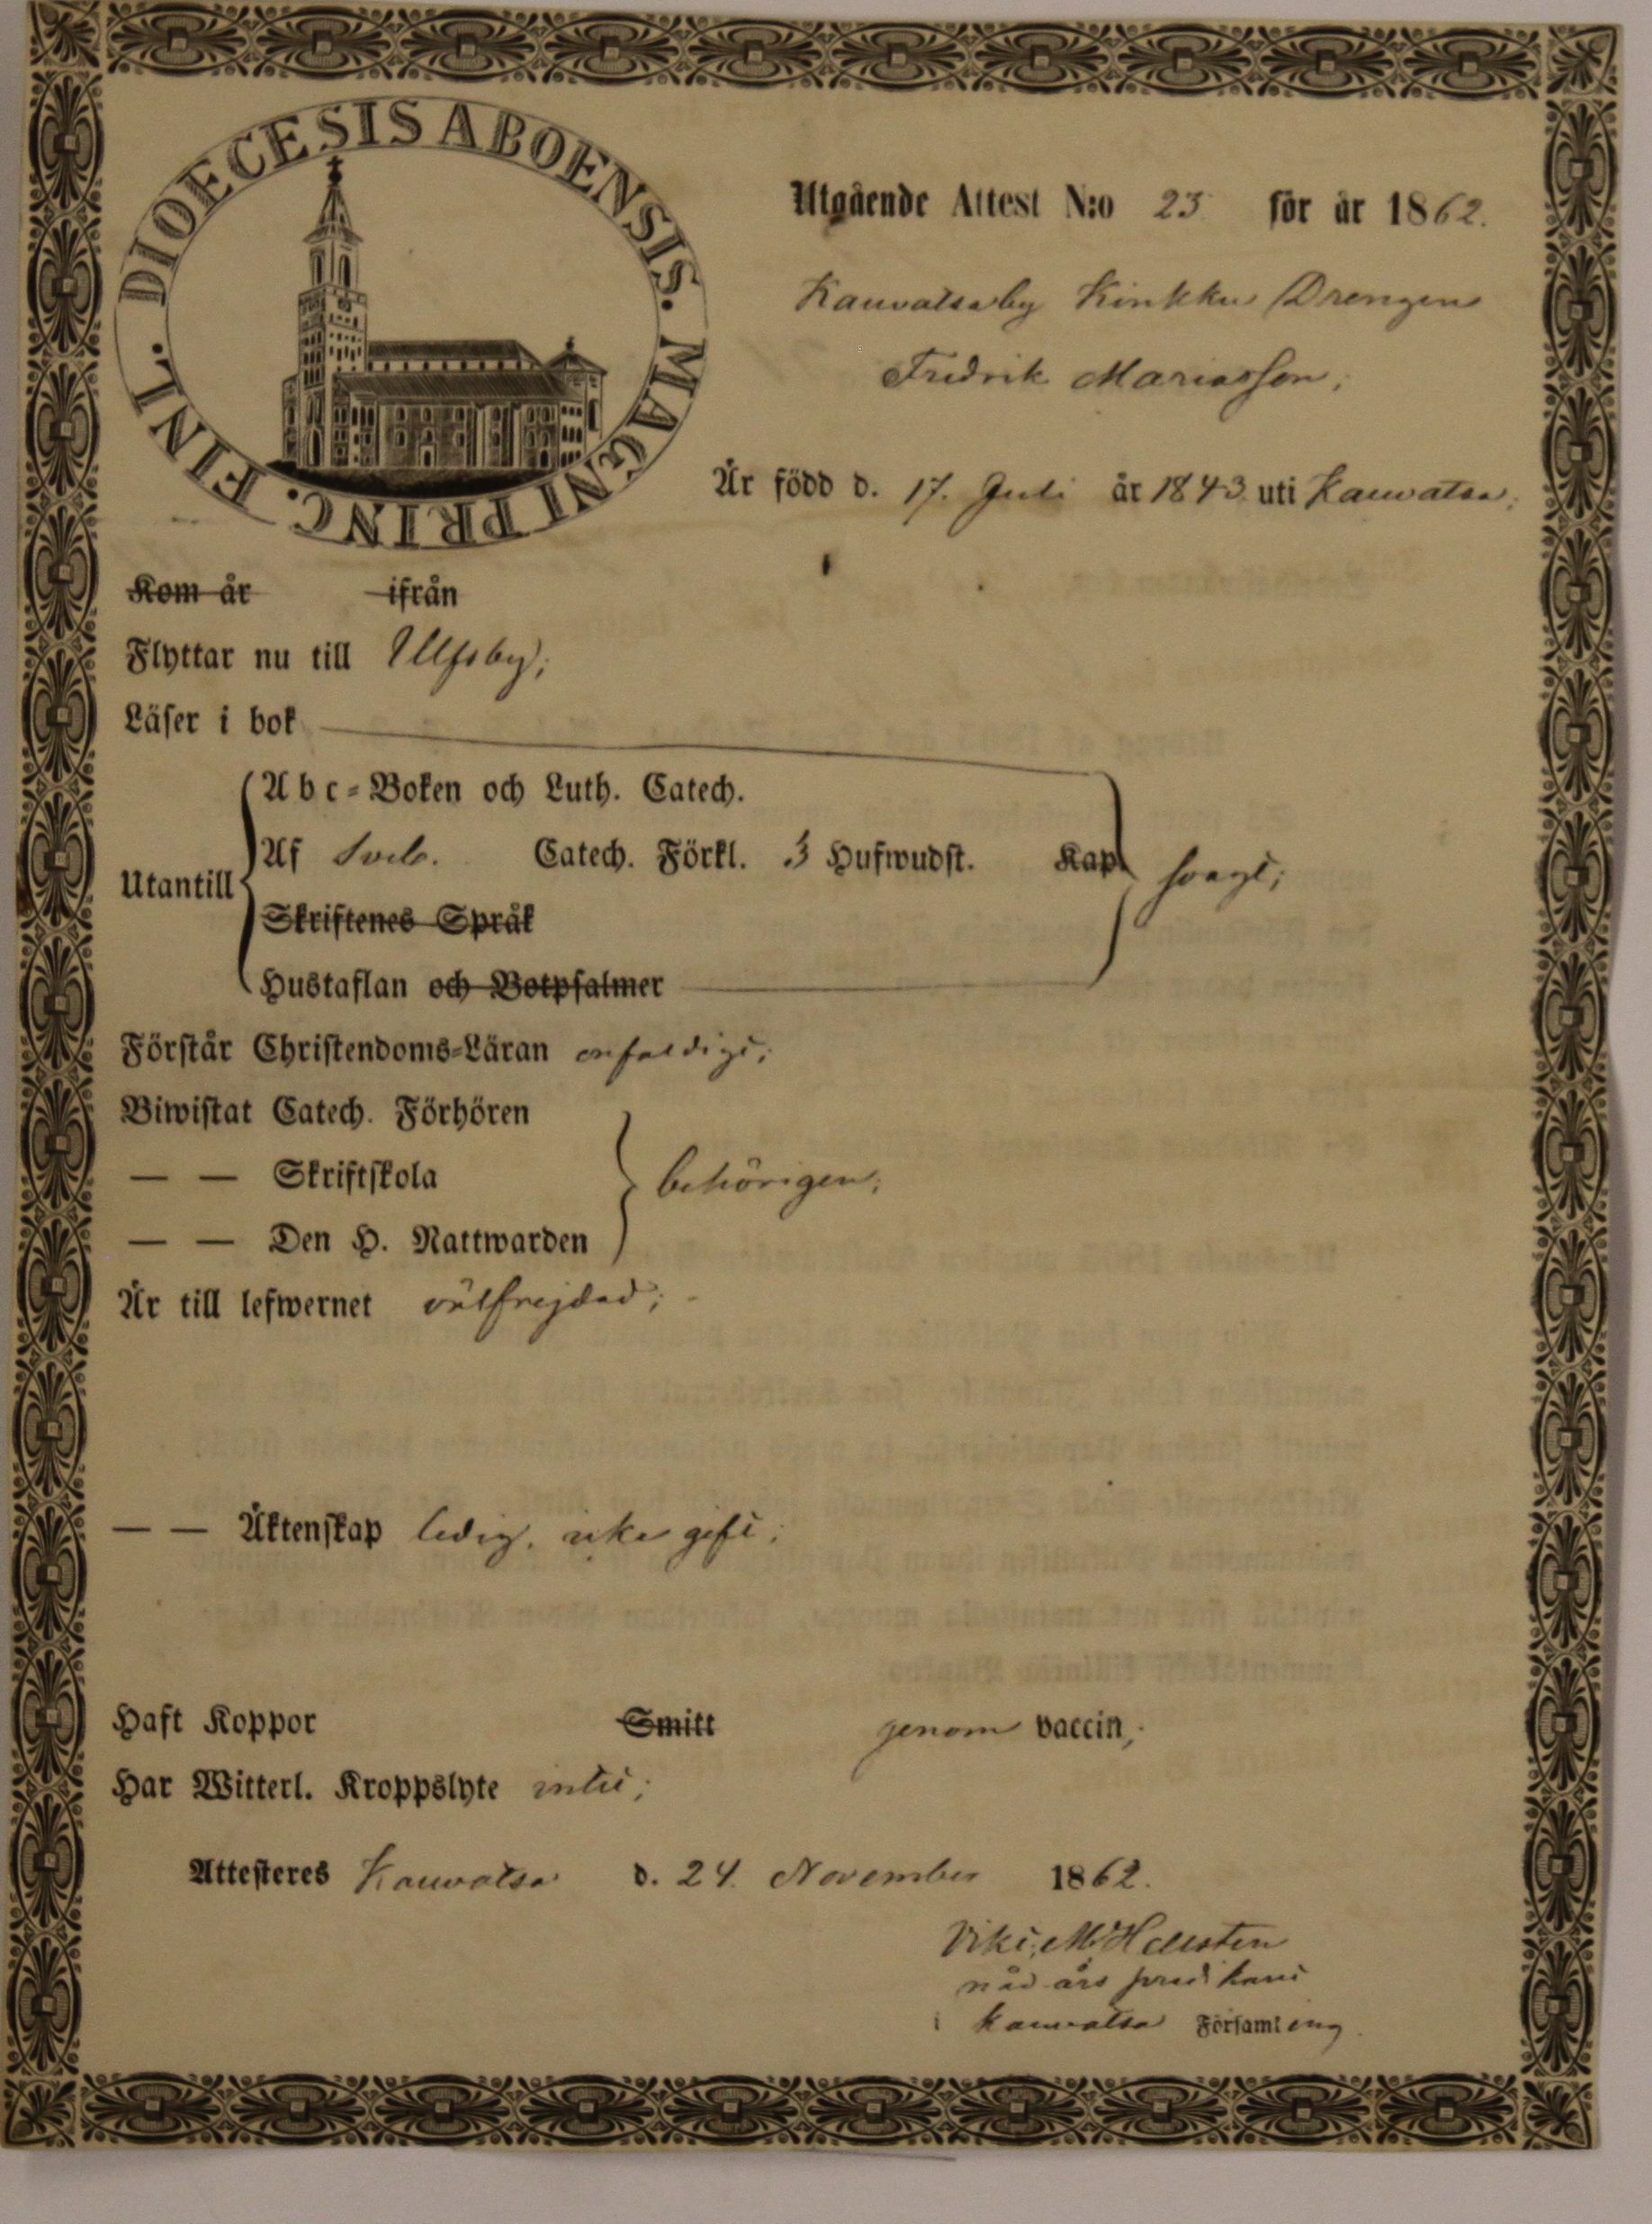 DIOECESIS ABOENSIS. MAGNI PRINC. FINL.
Utgående Attest N:o 23 för år 1862.
Kauvatsaby Kinkku Drengen
Fredrik Mariasson;
Är född d. 17. Juli år 1843 uti Kauvatsa;
Kom år ifrån
Flyttar nu till Ulfsby;
Läser i bok
Utantill
Abc-Boken och Luth. Catech.
Af Sveb. Catech. Förkl. 3 Hufwudst. Kap.
Skriftenes Språk
Hustaflan och Botpsalmer
svagt;
Förstår Christendoms-Läran enfaldigt;
Biwistat Catech. Förhören
— — Skriftskola
— — Den H. Nattwarden
behörigen;
Är till lefwernet välfrejdad;
— — Äktenskap ledig, icke gift;
Haft Koppor Smitt genom vaccin;
Har Witterl. Kroppslyte intet;
Attesteres Kauvatsa d. 24. November 1862.
Hellsten
nåd-års predikant
i Kauvatsa Församling.